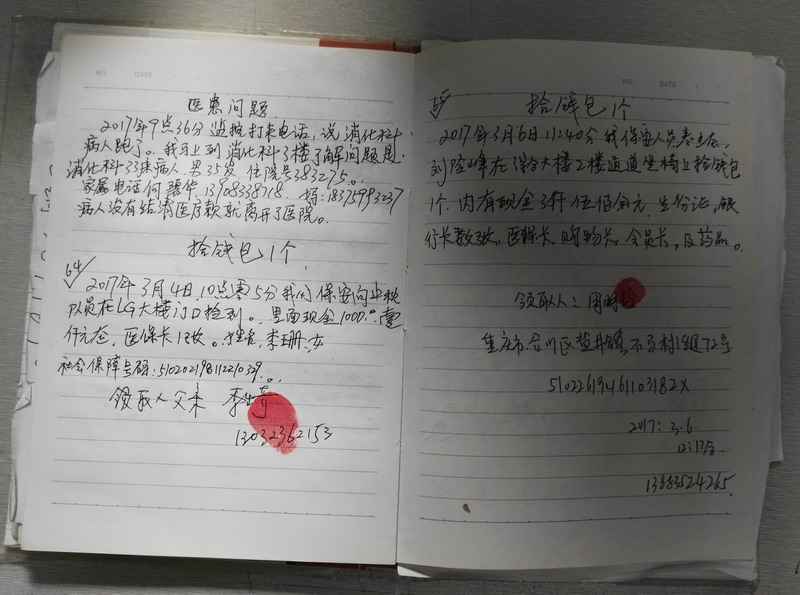 NO DATE
医患问题
2017年9点36分监控打来电话，说消化科
病人跑了。我马上到消化科3楼了解问题是
消化科33床病人.男35岁 住院号383275。
家属电话何 华13908338718 
病人没有结清医药款就离开了医院。
拾钱包1个
64
2017年3月4日,10点零5分我们保安向
队员在LG大楼门口捡到。里面现金1000.壹
仟元在，医保卡1张。姓名,李珊,女
社会保障号码:
领取人父亲 李
13032362153
NO DATE
65
拾钱包1个
2017年3月6日11:40分我保安人员秦
刘 峰在综合大楼2楼通道坐椅上捡钱包
1个.内有现金3仟伍佰余元.生份证,银
行卡数张,医保卡,购物卡,会员卡,及药品。
领取人:周
重庆市合川区盐井镇 村 组72号
51022619461103182X
2017.3.6
13883524265